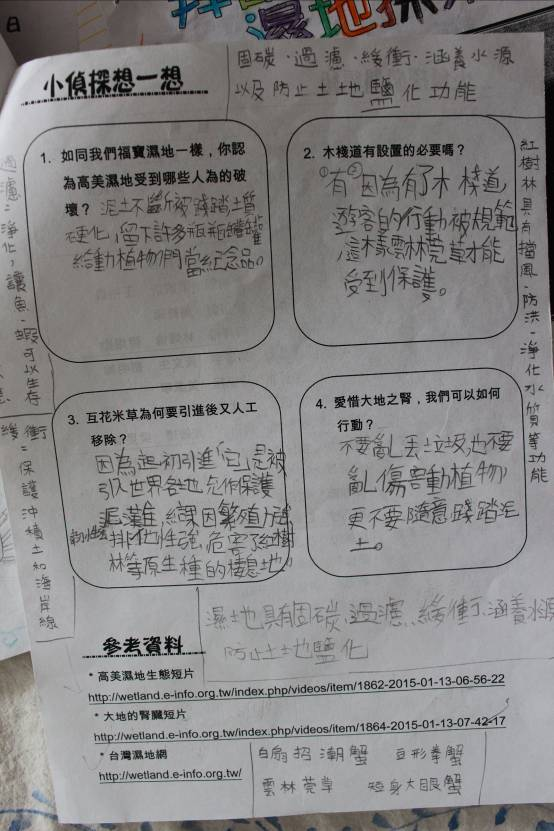 日
濕地探
小偵探想一想
固碳、過濾、緩衝、涵養水源
以及防止土地鹽化功能
1. 如同我們福寶濕地一樣，你認
為高美濕地受到哪些人為的破
壞？泥土不斷被踐踏土質
硬化，留下許多瓶瓶罐罐
給動植物們當紀念品。
2. 木棧道有設置的必要嗎？
有，因為有了木棧道，
遊客的行動被規範
，這樣雲林莞草才能
受到保護。
紅樹林具有擋風、防洪、淨化水質等功能
過濾=淨化，讓魚、蝦可以生存
緩衝=保護沖積土和海岸線
3. 互花米草為何要引進後又人工
移除？
因為起初引進「它」是被
引入世界各地允作保護
泥灘，結果因繁殖力強、
耐水性強 排他性強，危害了紅樹
林等原生種的棲息地。
4. 愛惜大地之腎，我們可以如何
行動？
不要亂丟垃圾，也不要
亂傷害動植物，
更不要隨意踐踏泥
土。
濕地具有固碳、過濾、緩衝、涵養水源
防止土地鹽化
參考資料
* 高美濕地生態短片
http://wetland.e-info.org.tw/index.php/videos/item/1862-2015-01-13-06-56-22
* 大地的腎臟短片
http://wetland.e-info.org.tw/index.php/videos/item/1864-2015-01-13-07-42-17
* 台灣濕地網
http://wetland.e-info.org.tw/
白扇招潮蟹 豆形拳蟹
雲林莞草 短身大眼蟹